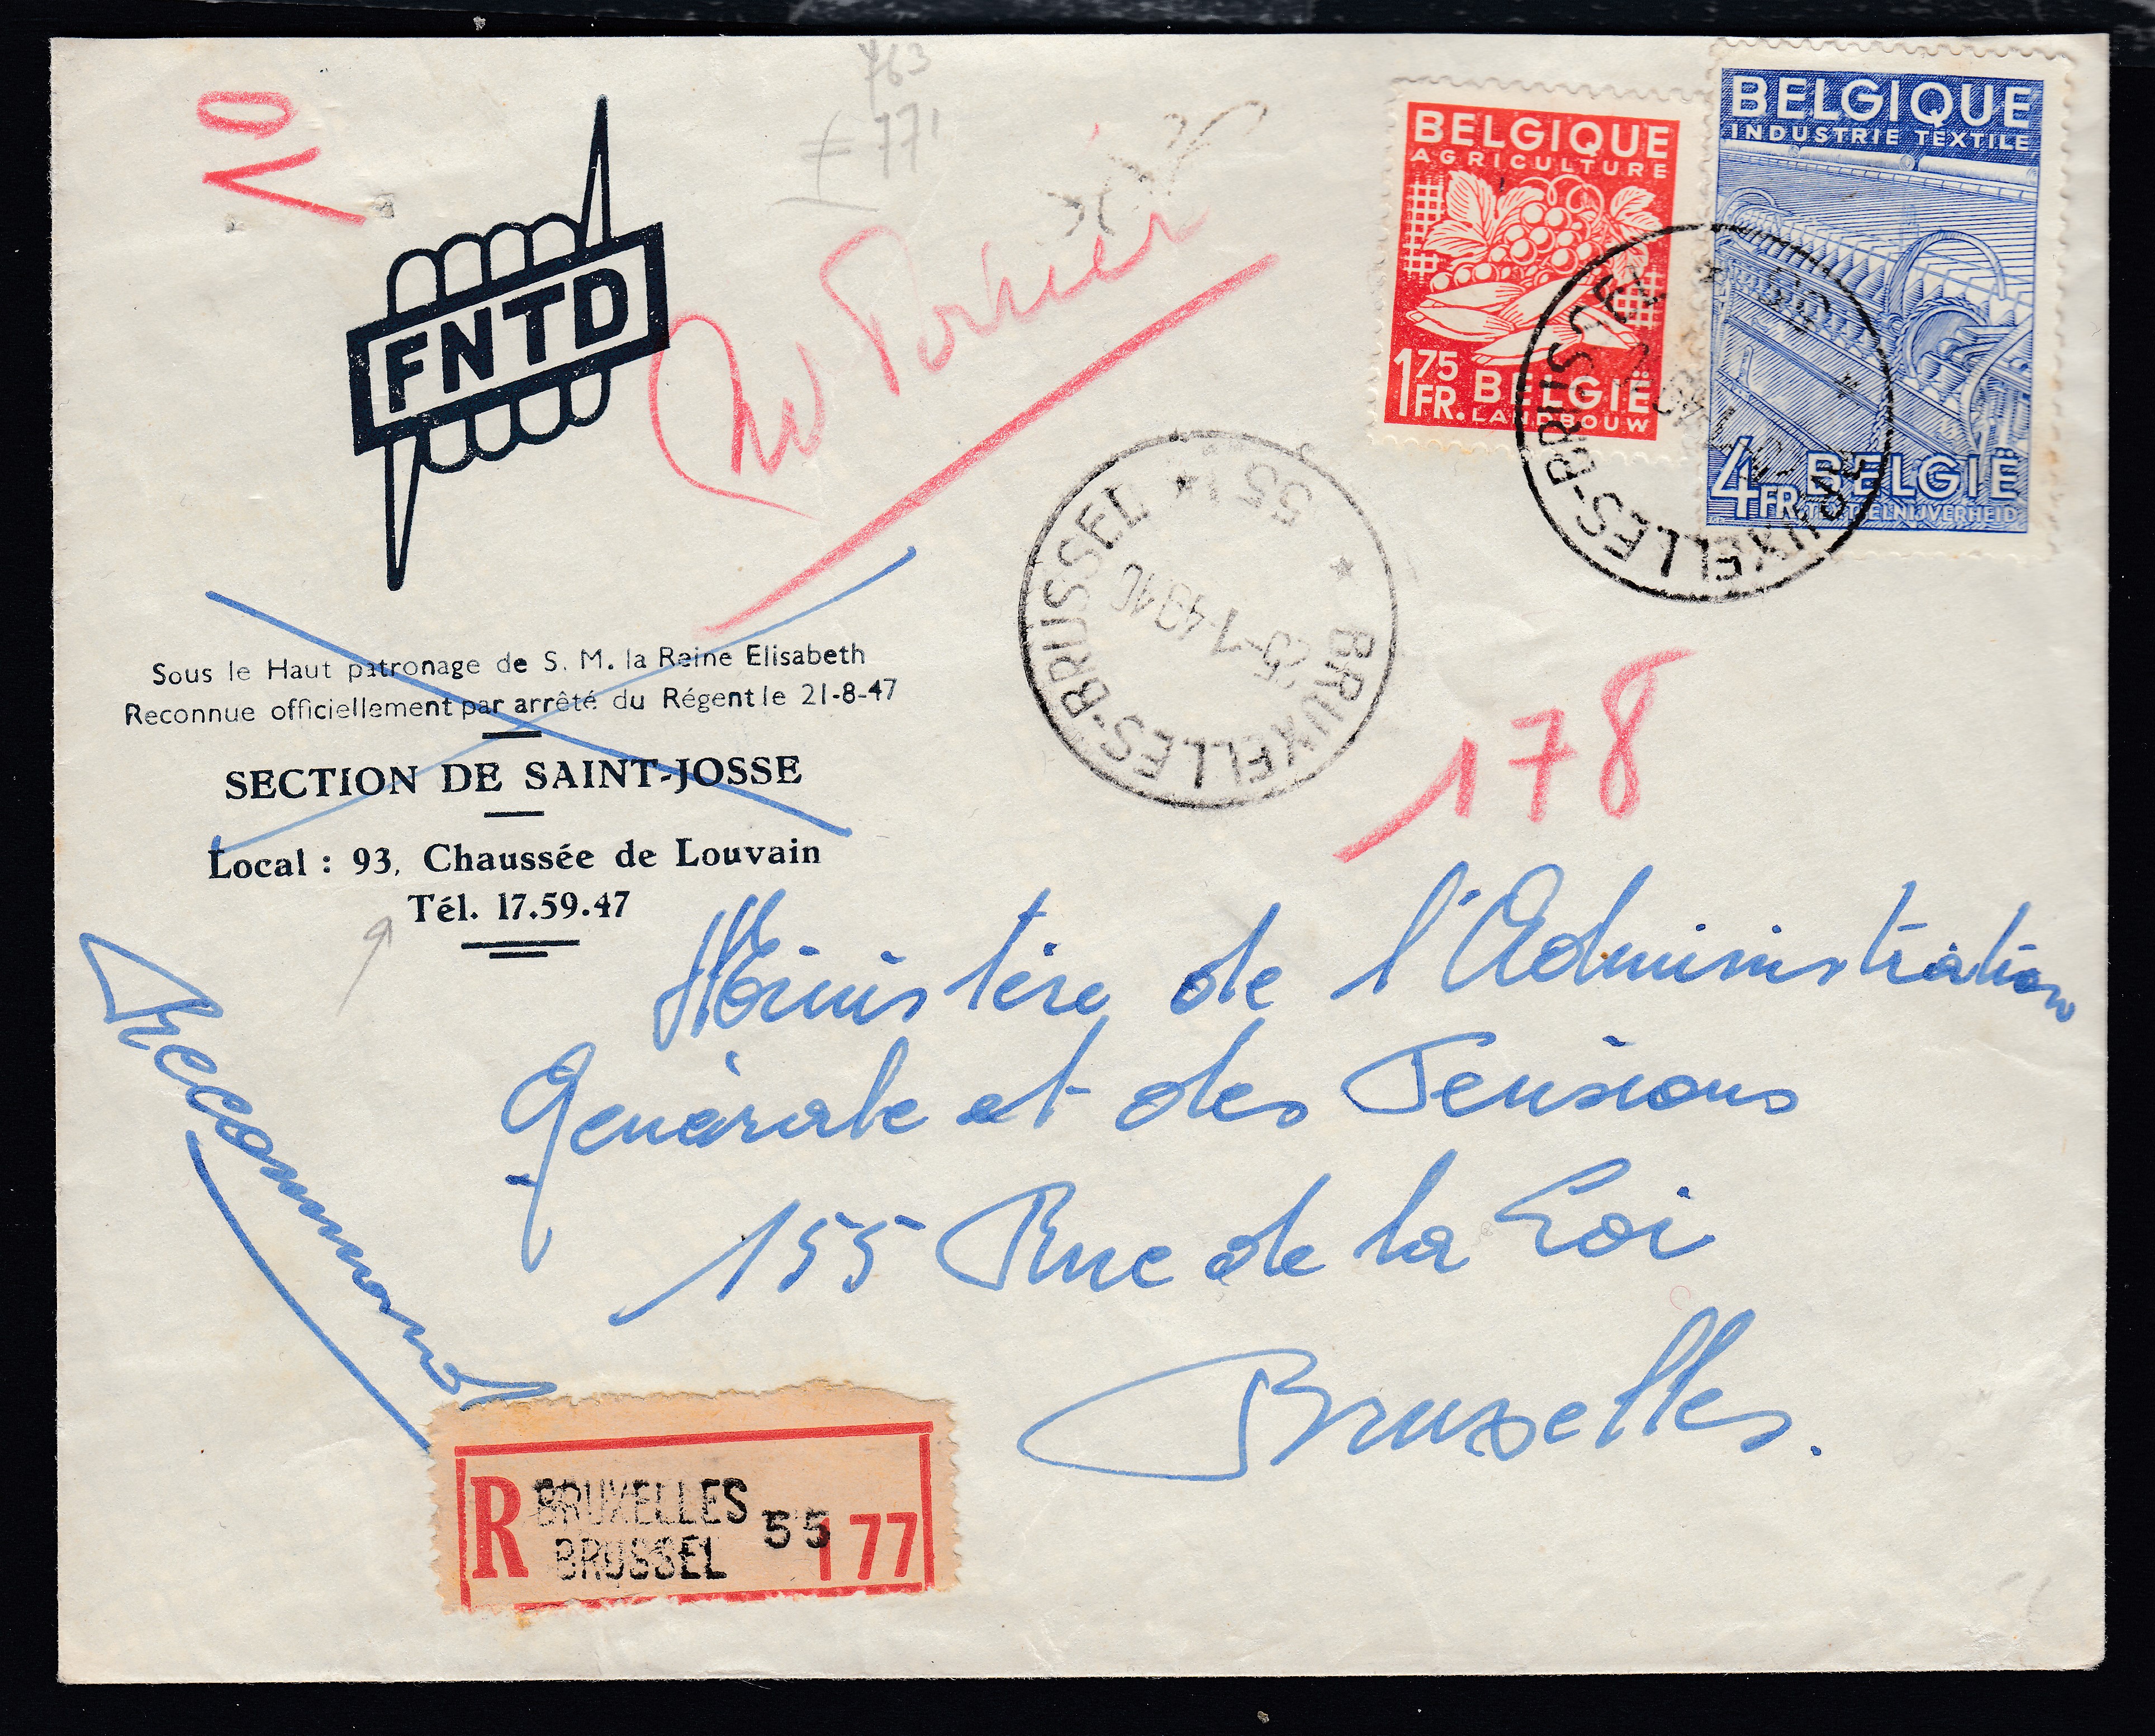 10
763
+ 771
FNTD
Mr
BELGIQUE
AGRICULTURE
1 75 FR. BELGIË
LANDBOUW
BELGIQUE
INDUSTRIE TEXTILE
4 FR BELGIË
TEXTIELNIJVERHEID
BRUXELLES-BRUSSEL
BRUXELLES-BRUSSEL
55
25-7-49 10
178
Sous le Haut patronage de S. M. la Reine Elisabeth
Reconnue officiellement par arrêté du Régent le 21-8-47
SECTION DE SAINT-JOSSE
Local : 93, Chaussée de Louvain
Tél. 17.59.47
Recommandé
Ministère de l'Administration
Générale et des Pensions
155 Rue de la Loi
Bruxelles.
R BRUXELLES
BRUSSEL 55 177